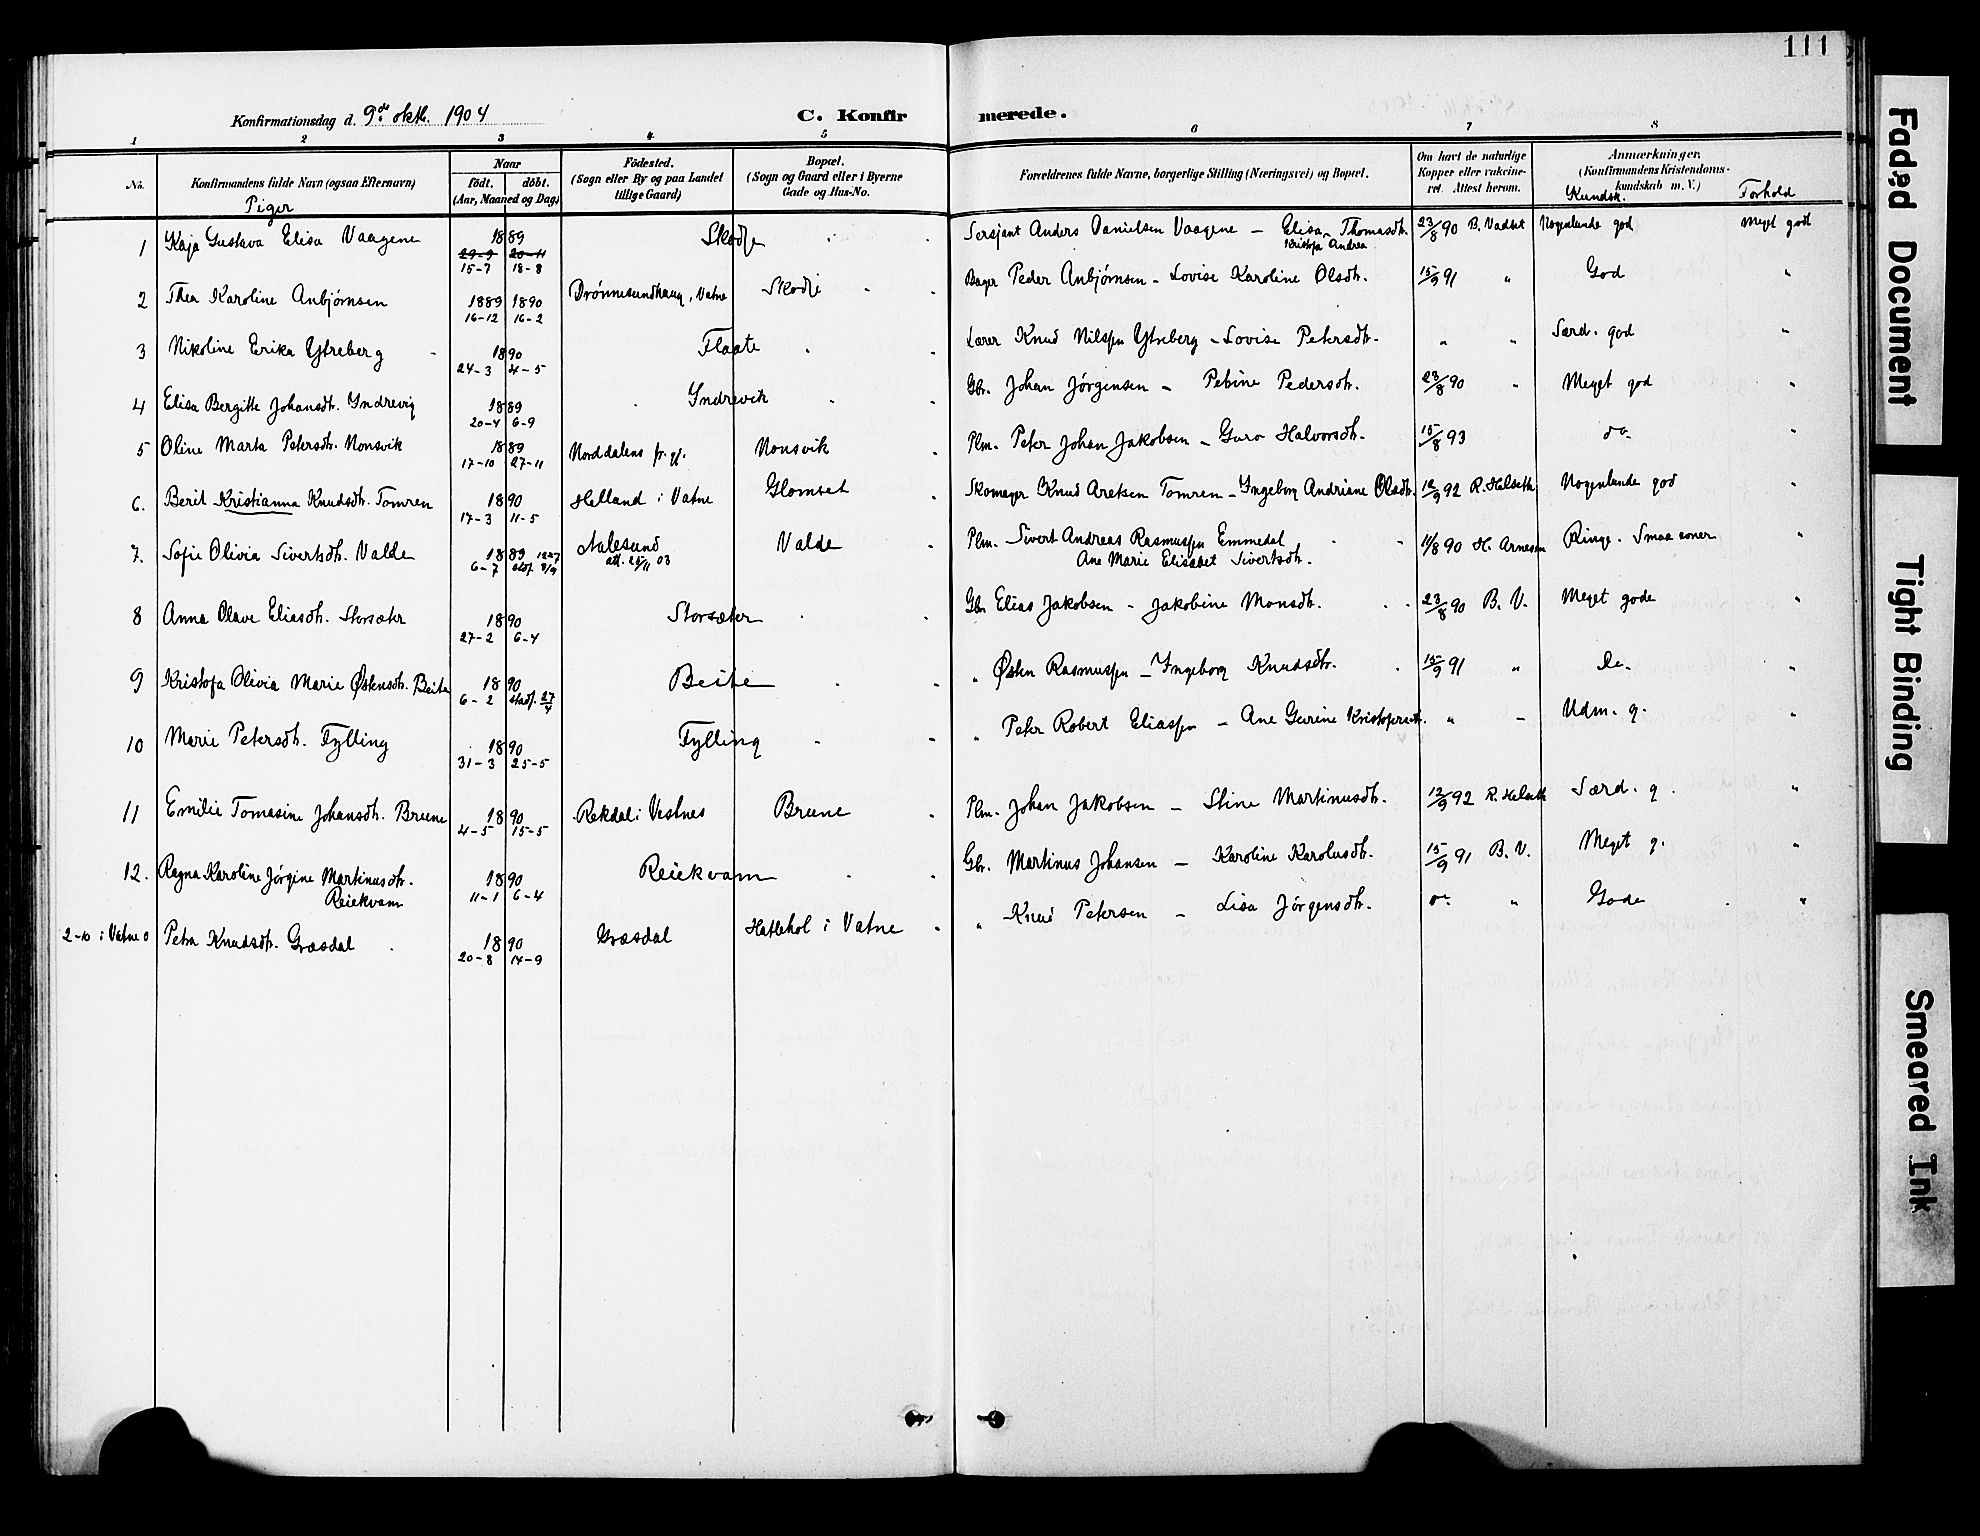 111
Konfirmationsdag d. 9de oktb. 1904
C. Konfirmerede.
1 2 3 4 5 6 7 8
No.
Konfirmandens fulde Navn (ogsaa Efternavn)
Piger
Naar
födt. döbt.
(Aar, Maaned og Dag)
Födested.
(Sogn eller By og paa Landet
tillige Gaard)
Bopæl.
(Sogn og Gaard eller i Byerne
Gade og Hus-No.
Forældrenes fulde Navne, borgerlige Stilling (Næringsvei) og Bopæl.
Om havt de naturlige
Kopper eller vakcine-
ret. Attest herom.
Anmærkninger.
(Konfirmandens Kristendoms-
kundskab m. V.)
Kundsk. Forhold
1 Kaja Gustava Elisa Vaagene 1889 Skodje Sersjant Anders Danielsen Vaagene – Elisa Thomasdtr. 23/8 90 B. Vadset Nogenlunde god Meget godt
29-9 20-11 Kristofa Andrea
15-7 18-8
2 Thea Karoline Anbjørnsen 1889 1890 Drønnesundhaug, Vatne Skodje Bager Peder Anbjørnsen – Lovise Karoline Olsdtr. 15/9 91 " God "
16-12 16-2
3 Nikoline Erika Ytreberg 1890 Flaate Lærer Knud Nilssen Ytreberg – Lovise Petersdtr. " " Særd. god "
24-3 4-5
4 Elisa Bergitte Johansdtr. Yndrevig 1889 Yndrevik Gbr. Johan Jørgensen – Petine Pedersdtr. 23/8 90 " Meget god "
20-4 6-9
5 Oline Marta Petersdtr. Nonsvik 1889 Norddalens pr.gj. Nonsvik Plm. Peter Johan Jakobsen – Guro Halvorsdtr. 15/8 93 do. "
17-10 27-11
6. Berit Kristianna Knudsdtr. Tomren 1890 Helland i Vatne Glomset Skomager Knud Aretsen Tomren – Ingeborg Andriane Olsdtr. 12/9 92 R. Helseth Nogenlunde god "
17-3 11-5
7. Sofie Olivia Sivertsdtr. Valde 1889 Aalesund Valde Plm. Sivert Andreas Rasmussen Emmedal 11/8 90 H. Arnesen Ringe. Smaa evner "
6-7 stadf. 8/9 att. 25/11 03 Ane Marie Elisabet Sivertsdtr.
8 Anna Olave Eliasdtr. Storsæter 1890 Storsæter Gbr. Elias Jakobsen – Jakobine Monsdtr. 23/8 90 B. V. Meget gode "
27-2 6-4
9 Kristofa Olivia Marie Østensdtr. Beite 1890 Beite " Østen Rasmussen – Ingeborg Knudsdtr. 15/9 91 " do. "
6-2 stadf. 27/4
10 Marie Petersdtr. Fylling 1890 Fylling " Peter Robert Eliassen – Ane Gurine Kristofersdtr. " " Udm. g. "
31-3 25-5
11 Emilie Tomasine Johansdtr. Brune 1890 Rekdal i Vestnes Brune Plm. Johan Jakobsen – Stine Martinusdtr. 12/9 92 R. Helseth Særd. g. "
4-5 15-5
12. Ragna Karoline Jørgine Martinusdtr. 1890 Reiekvam Gbr. Martinus Johansen – Karoline Karolusdtr. 15/9 91 B. V. Meget g. "
Reiekvam 11-1 6-4
2-10 i Vatne Petra Knudsdtr. Græsdal 1890 Græsdal Hatlehol i Vatne " Knud Petersen – Lisa Jørgensdtr. do. " Gode "
20-8 14-9
Faded Document
Tight Binding
Smeared Ink